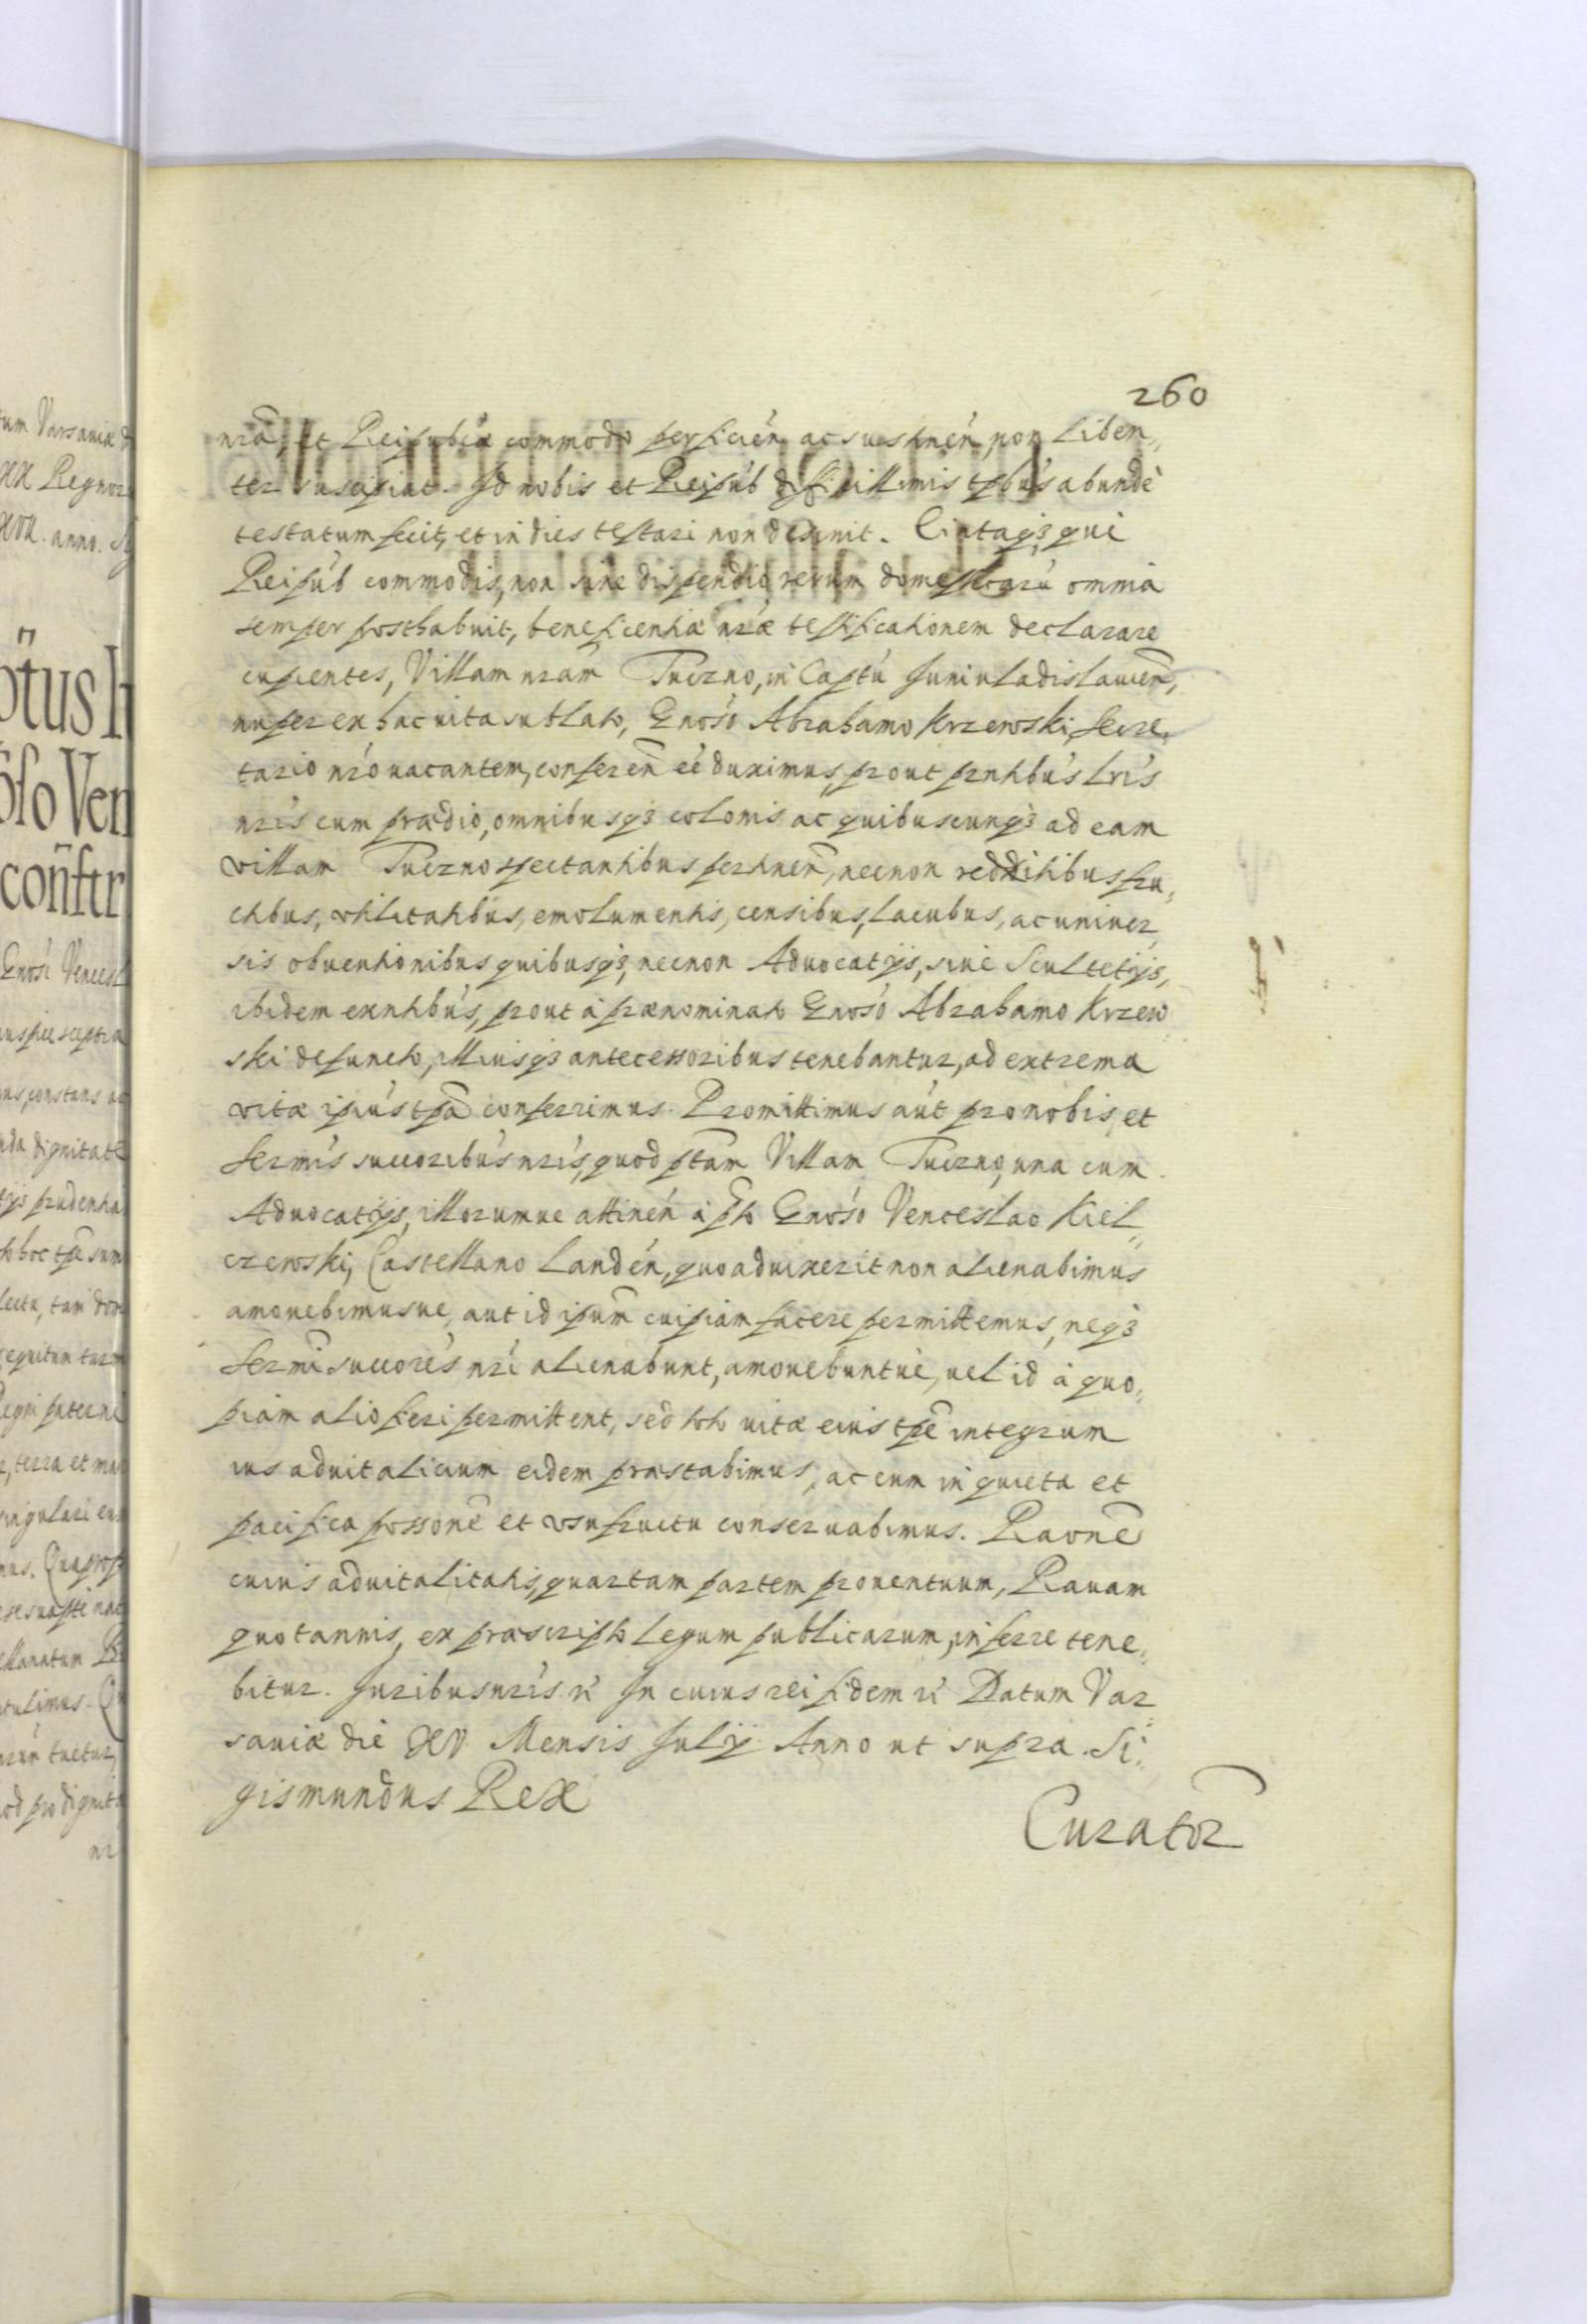 260
nrã, et Reipubcæ commodo perficien ac sustinen, non liben„
ter suscipiat. Id nobis et Reipúb difficillimis tpbús abundè
testatum fecit, et in dies testari non desinit. Ei itaq₃ qui
Reipúb commodis, non sine dispendio rerum domesticarú omnia
semper posthabuit, beneficentiæ nræ testificationem declarare
cupientes, Villam nrám Tuczno, in Captú Juniuladislauien̄,
nuper ex hac uita sublato, Gnoso Abrahamo Krzewski, Secre„
tario nró uacantem, conferen̄ eé duximus, prout pntibús lrís
nrís cum prædio, omnibusq₃ colonis ac quibuscunq₃ ad eam
villam Tuczno spectantibus pertinen̄, necnon redditibus fru„
ctibus, vtilitatibus, emolumentis, censibus, lacubus, ac uniuer„
sis obuentionibus quibusq₃, necnon Aduocatijs, siue Scultetijs,
ibidem exntibús, prout à prænominato Gnosó Abrahamo Krzew„
ski defuncto, illiusq₃ antecessoribus tenebantur, ad extrema
vitæ ipiús tpã conferrimus. Promittimus aút pro nobis, et
Sermís succoribús nrís, quod ptam̄ Villam Tuczno, una cum
Aduocatijs, illorumue attinén à pto Gnosó Venceslao Kiel„
czewski, Castellano Landén, quoad uixerit non alienabimus
amouebimusue, aut id ipum̄ cuipiam facere permittemus, neq₃
Sermi succorés nrí alienabunt, amouebuntuè, uel id à quo„
piam alio fieri permittent, sed toto uitæ eius tpē integrum
ius aduitalicium eidem præstabimus, ac eum in quieta et
pacifica possonē et vsufructu conseruabimus. Raonē
cuius aduitalitatis, quartam partem prouentuum, Rauam
quotannis, ex præscripto legum publicarum, inferre tene„
bitur. Juribus nrís rí In cuius rei fidem rí Datum Var„
sauiæ die XV Mensis Julij Anno ut supra. Si„
gismundus Rex
Curator